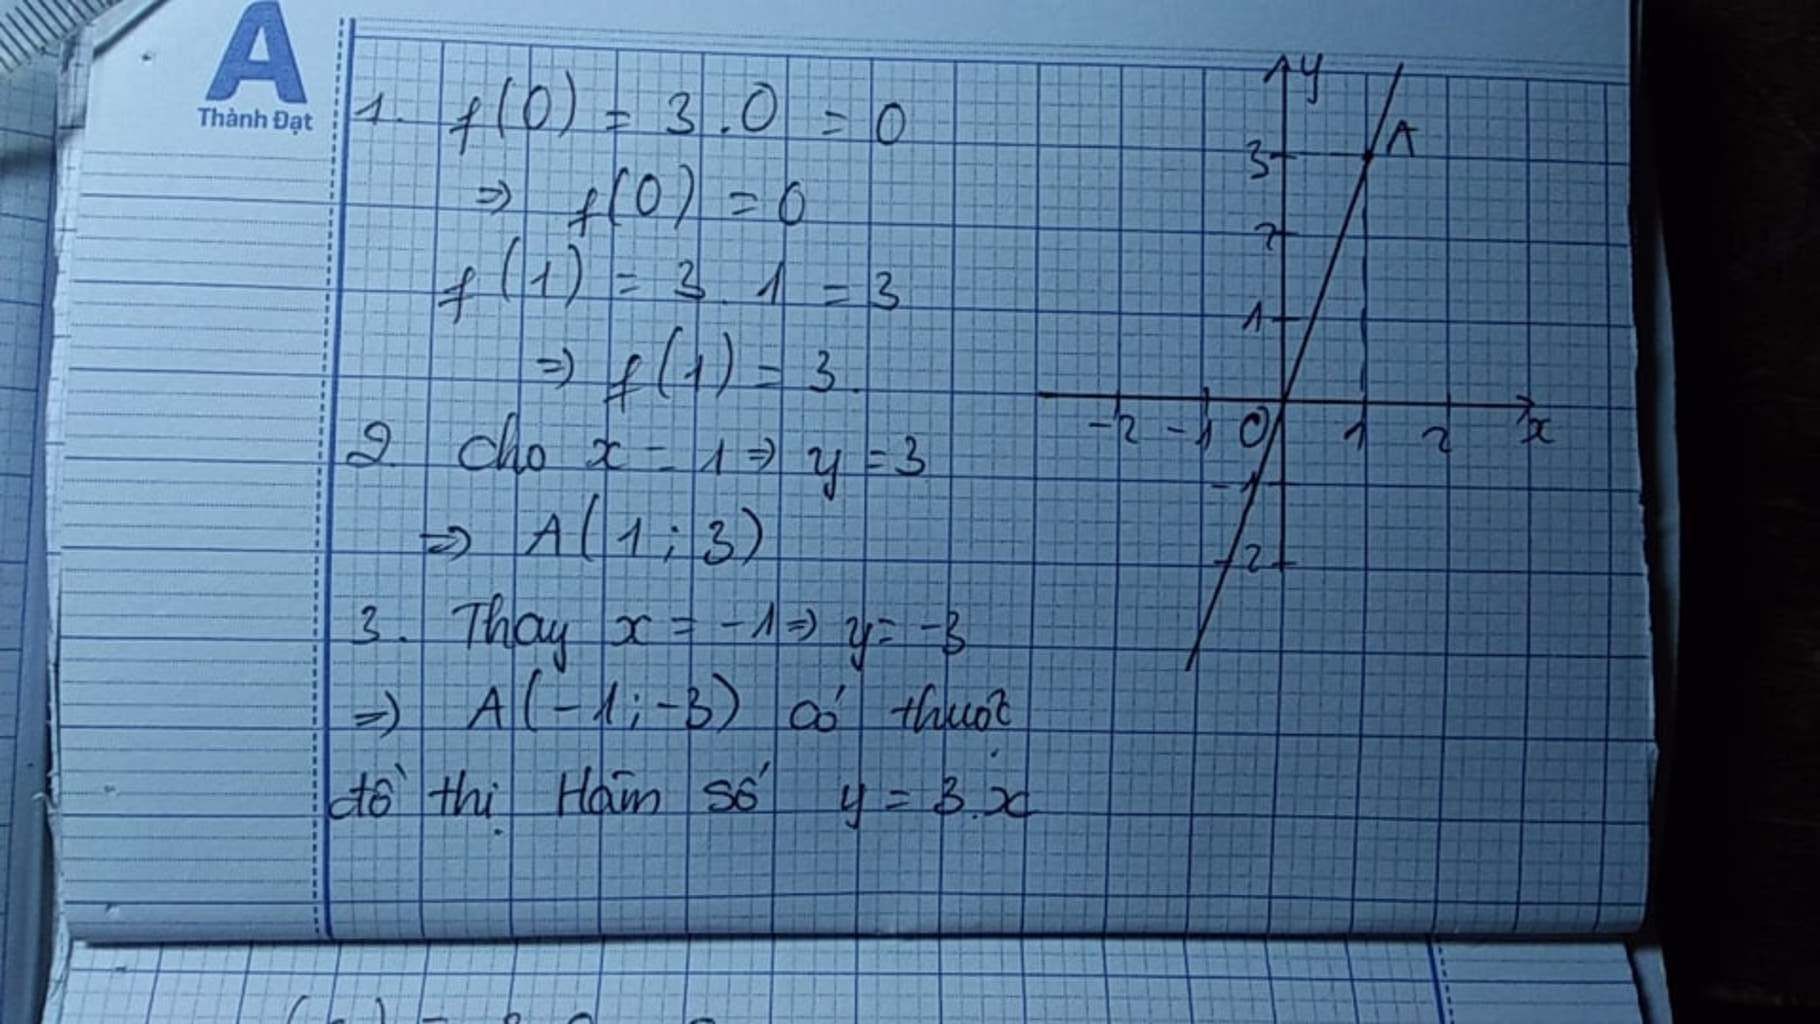 A
Thành Đạt
1. f(0) = 3.0 = 0
⇒ f(0) = 0
f(1) = 3.1 = 3
⇒ f(1) = 3.
2 Cho x = 1 ⇒ y = 3
⇒ A(1; 3)
3. Thay x = -1 ⇒ y = -3
⇒ A(-1; -3) có thuọc
đồ thị Hàm số y = 3.x
y
A
3
2
1
-2 -1 0 1 2 x
-1
-2